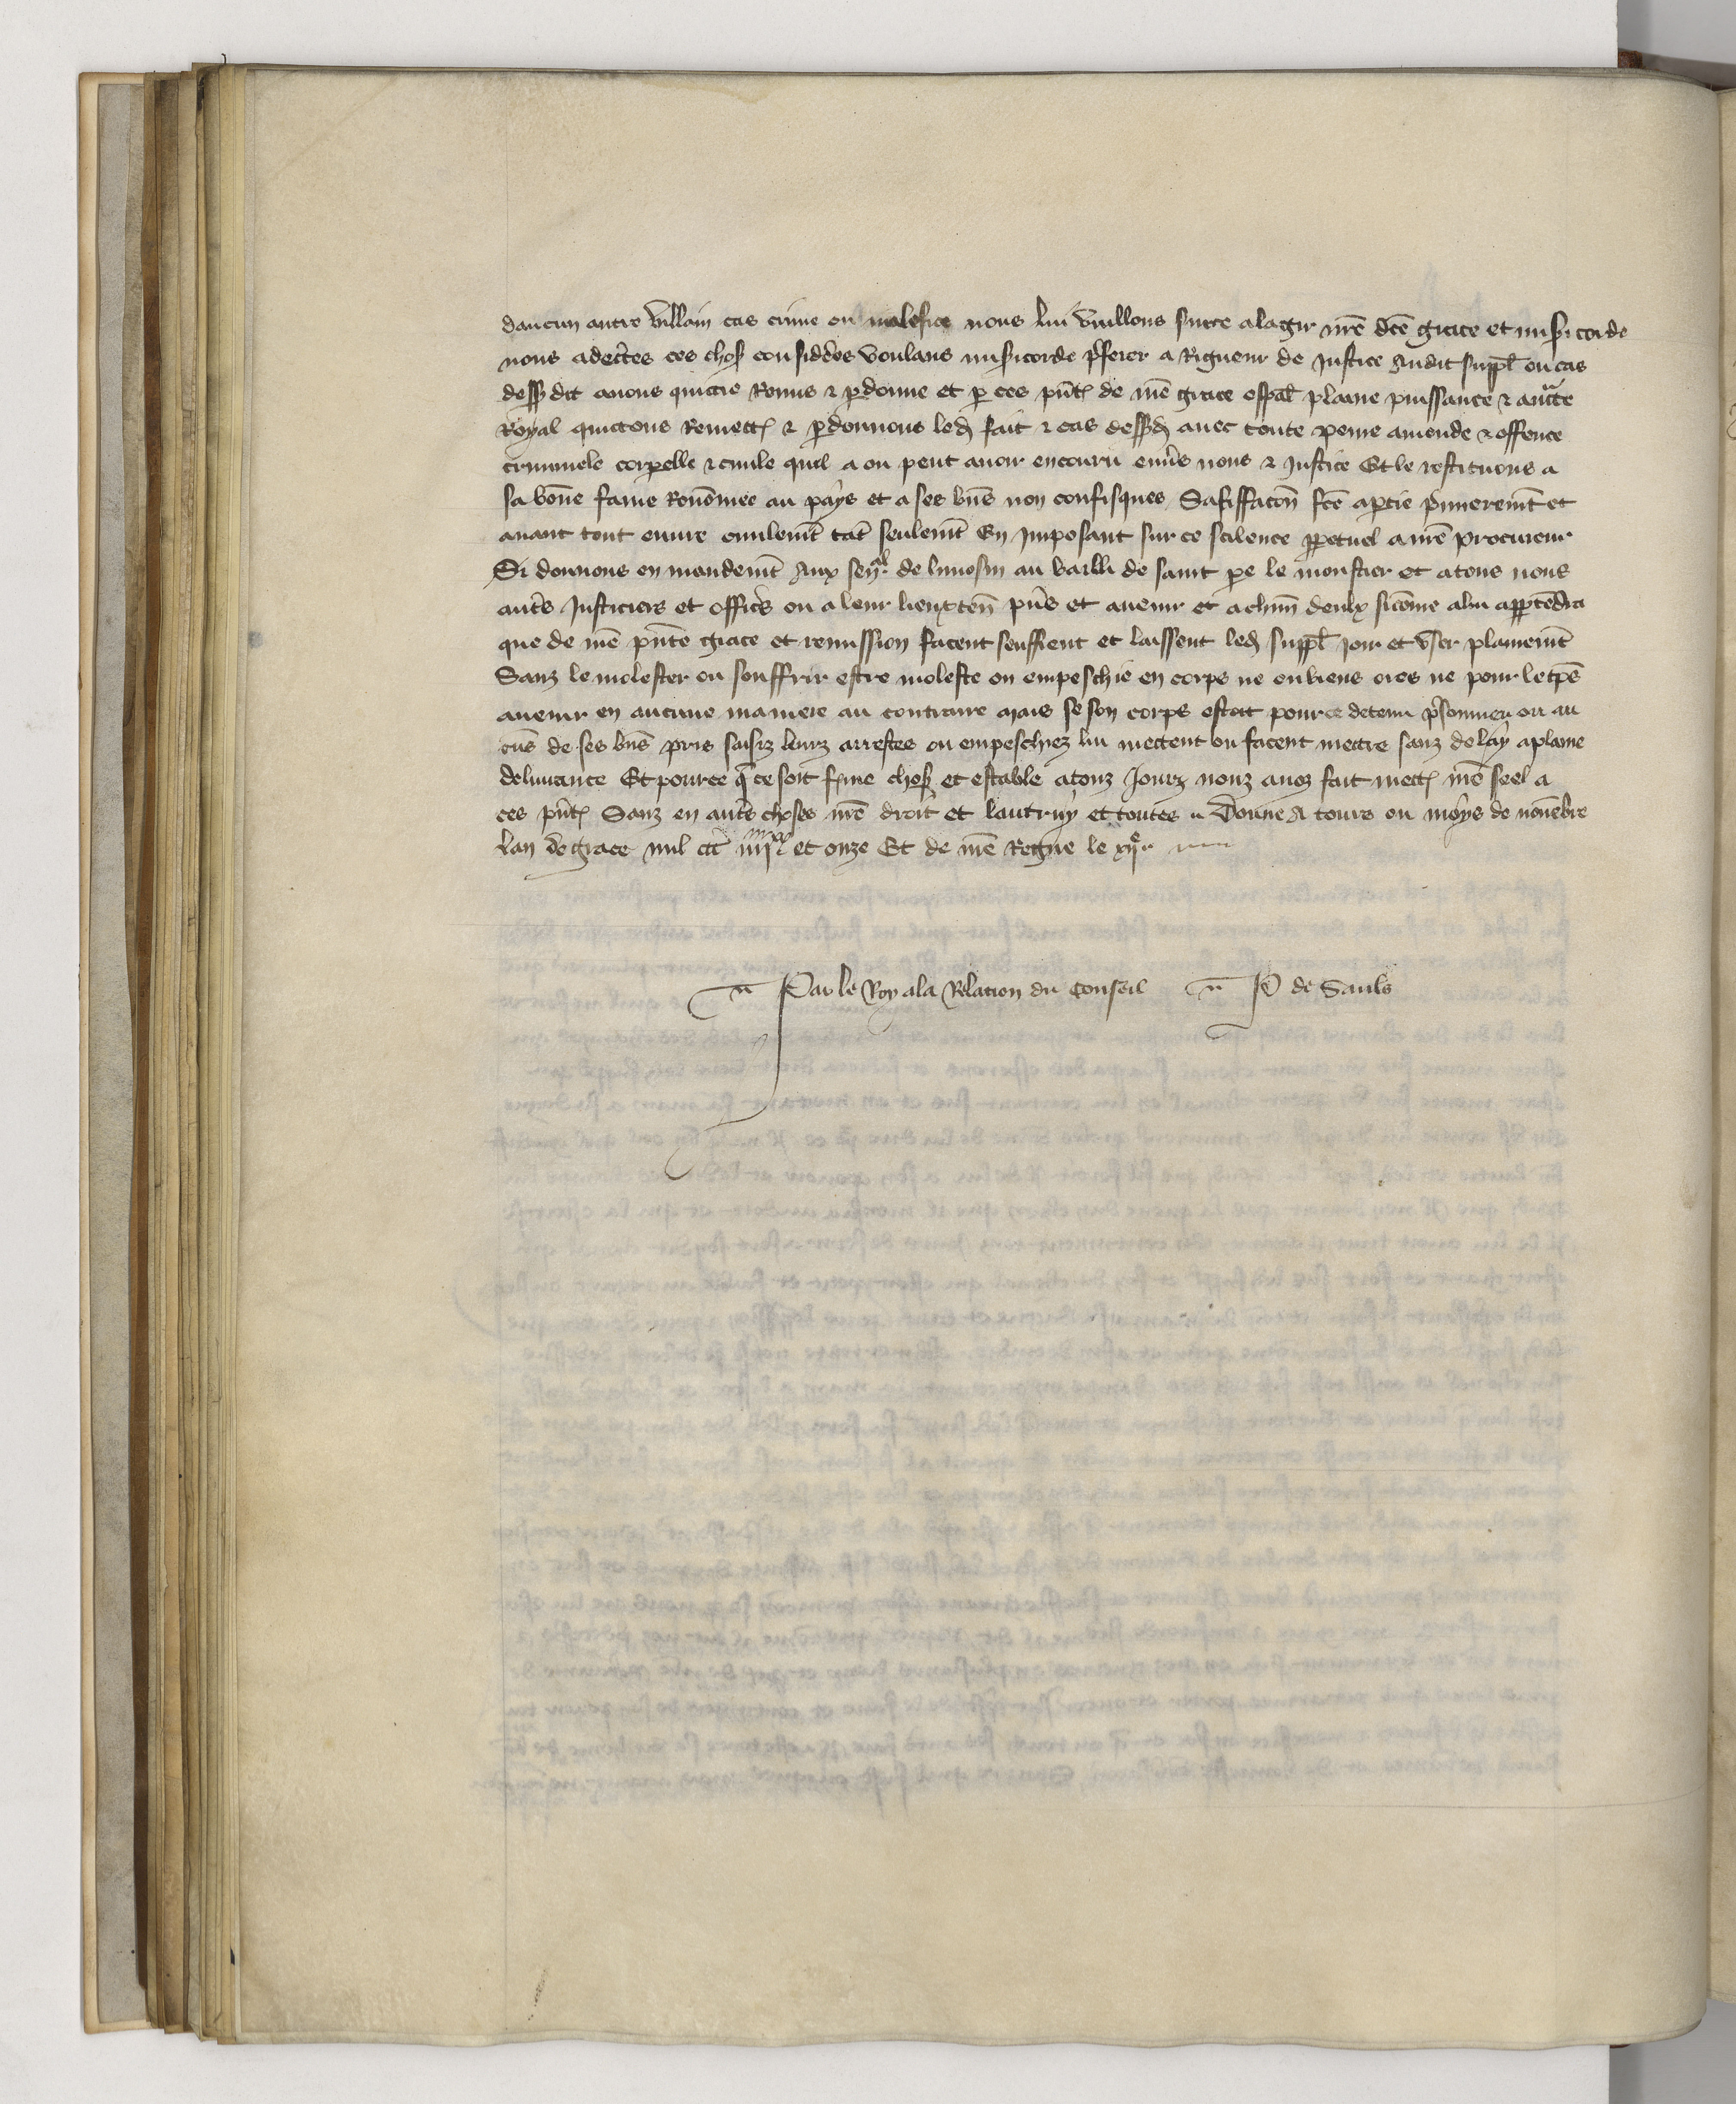 daucun autre villain cas crime ou malefice nous lui vuillons surce alagir nr̃e dcẽ grace et mis̃icorde
nous adecẽtes ces chos̃ considdẽes voulans mis̃icorde p̃ferer a Rigueur de Justice Audit suppl̃ ou cas
dess̃ dit auons quictie Remis & p̱donne et p̱ ces pñt̃ de nr̃e grace esp̃al plaine puissance & auct̃e
Royal quictons Remett̃ & p̱donnons led̃ fait & cas dess̃d̃ auec toute peine amende & offence
criminele corporelle & ciuile quil a ou peut auoir encouru enuers̃ nous & Justice Et le restituons a
sa bõne fame Renõmee au pays et a ses biñs non confisques Satisfaccoñ fcẽ a p̱tie p̃mieremt̃ et
auant tout euure ciuilemt̃ tat̃ seulemt̃ En Imposant sur ce scilence p̱petuel a nr̃e procureur
Si donnons en mandemt̃ Aux seña̾l de limosin au bailli de saint p̱e le moustier et atous nous
autr̃s Justiciers et officr̃s ou a leur lieuxteñ pñs et auenir et achũn deulx sicõme alui app̱tẽdra
que de nr̃e pñte grace et remission facent seuffrent et laissent led̃ suppl̃ joir et vser plainemt̃
Sanz le molester ou souffrir estre moleste ou empeschie en corps ne en biens ores ne pour le tp̃s
auenir en aucune maniere au contraire mais se son corps estoit pour ce detenu p̃sonnier ou au
cũs de ses biñs pris saisiz leuez arrestes ou empeschiez lui mettent ou facent mettre sanz delay aplaine
deliurance Et pource q̃ ce soit f̃me chos̃ et estable atouz Jours nouz auoz fait mett̃ nr̃e seel a
ces pñt̃ Sanz en autr̃s choses nr̃e droit et lautruy et toutes Donne A tours ou moys de nouẽbre
Lan de grace mil ccc̃ iiij xx et onze Et de nr̃e Regne le xije
Par le Roy ala Relacion du Conseil P de Sauls